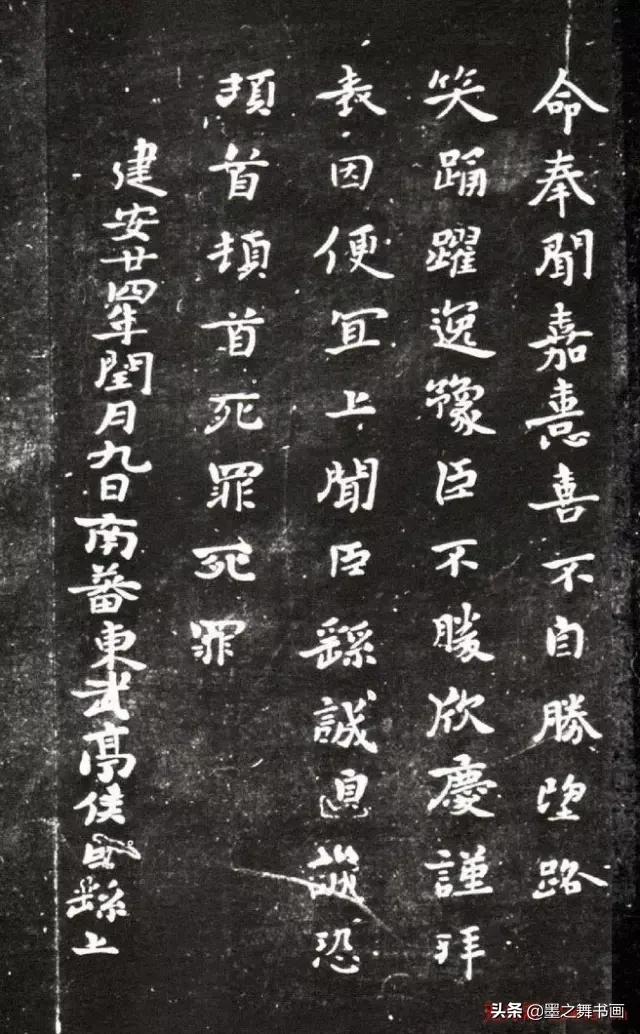 命奉聞嘉憙喜不自勝望路
笑踊躍逸豫臣不勝欣慶謹拜
表因便冝上聞臣繇誠惶誠恐
頓首頓首死罪死罪
建安廿四年閏月九日南蕃東武亭侯臣繇上
头条 @墨之舞书画